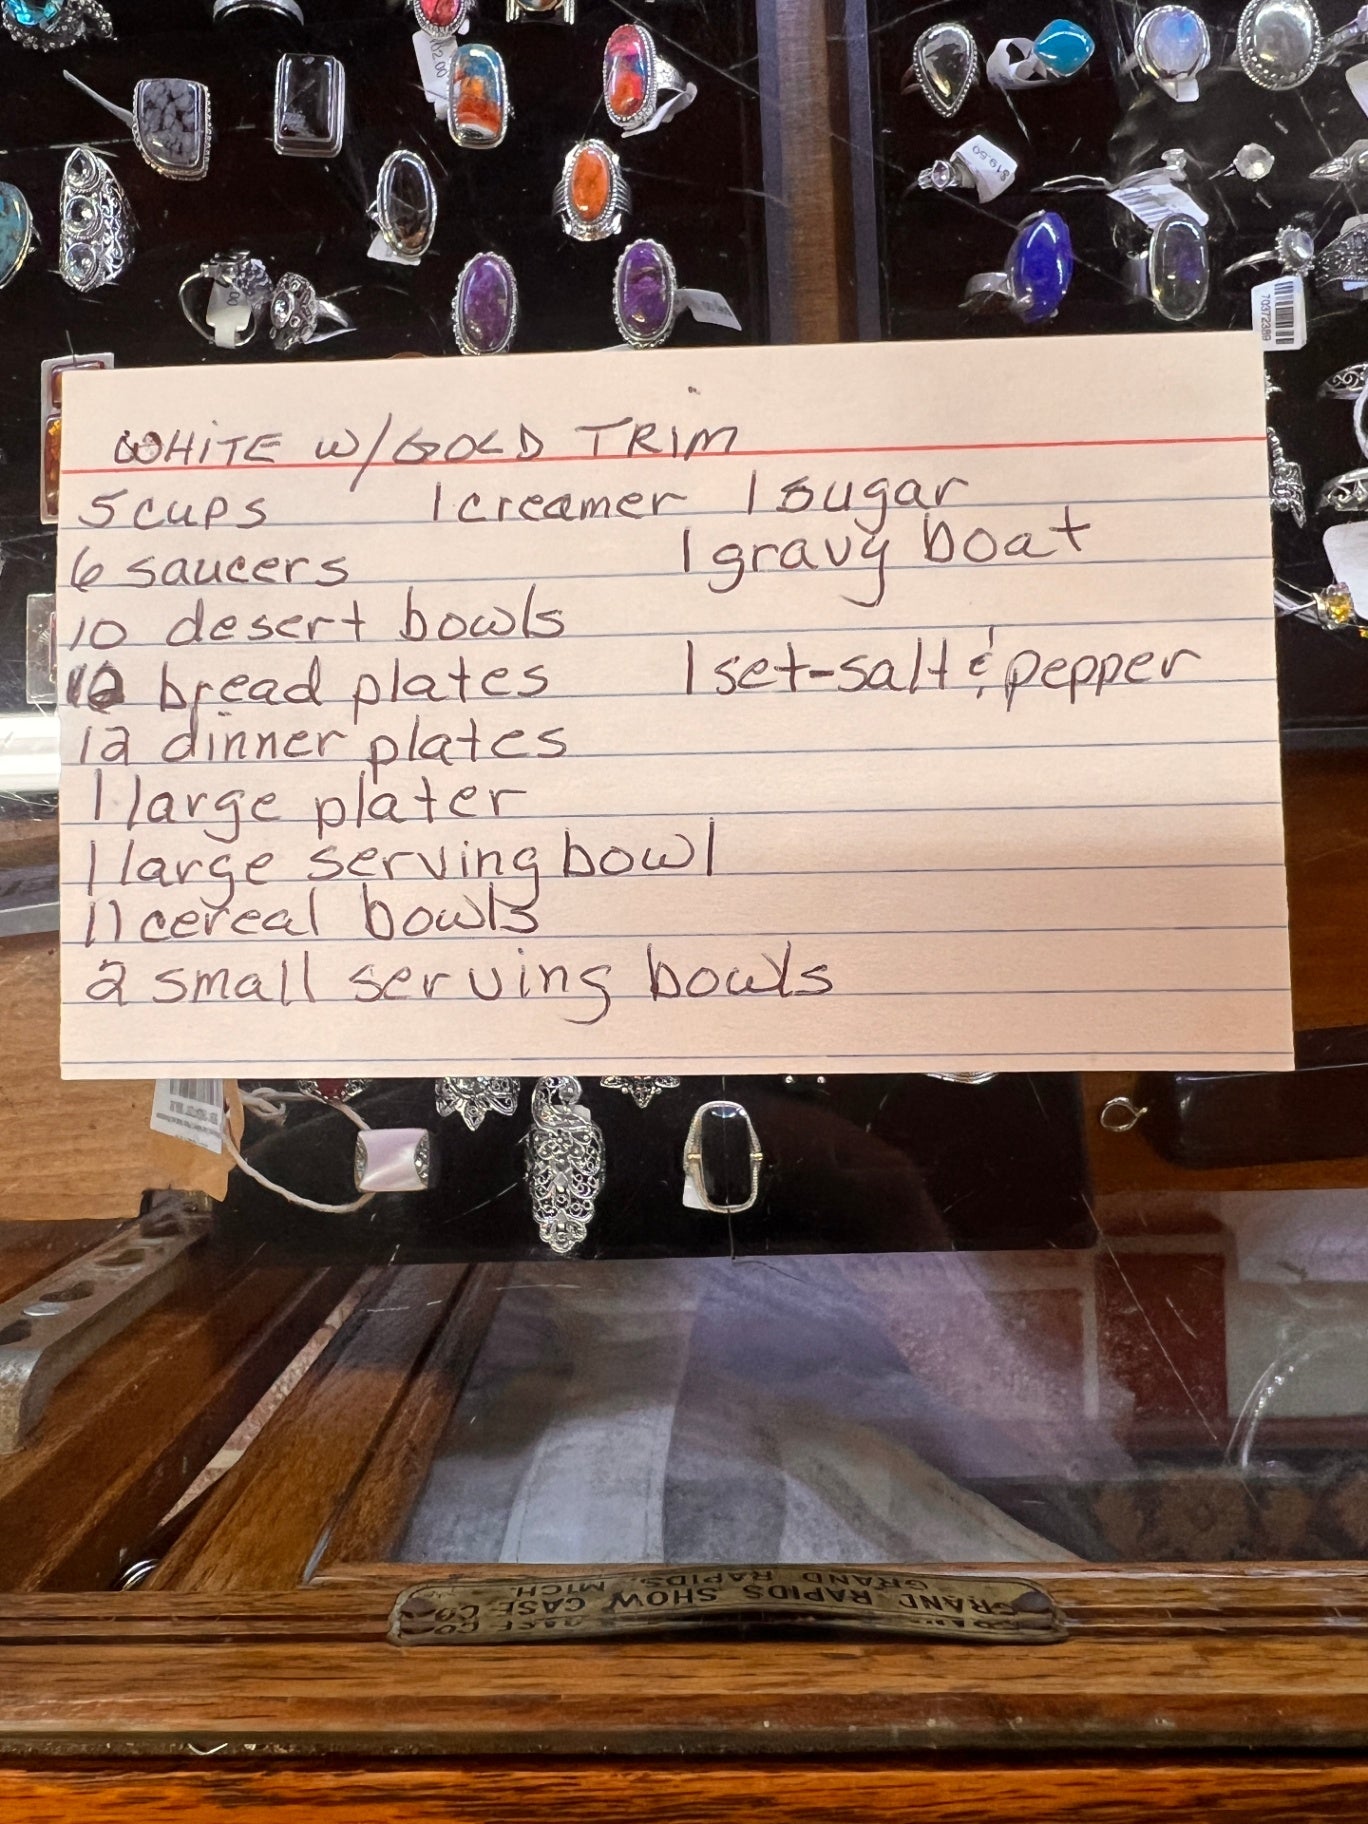 702.00
$19.50
70372389
WHITE W/GOLD TRIM
5 cups 1 creamer 1 sugar
6 saucers 1 gravy boat
10 desert bowls
bread plates 1 set-salt & pepper
12 dinner plates
1 large plater
1 large serving bowl
11 cereal bowls
2 small serving bowls
GRAND RAPIDS SHOW CASE CO.
GRAND RAPIDS, MICH.